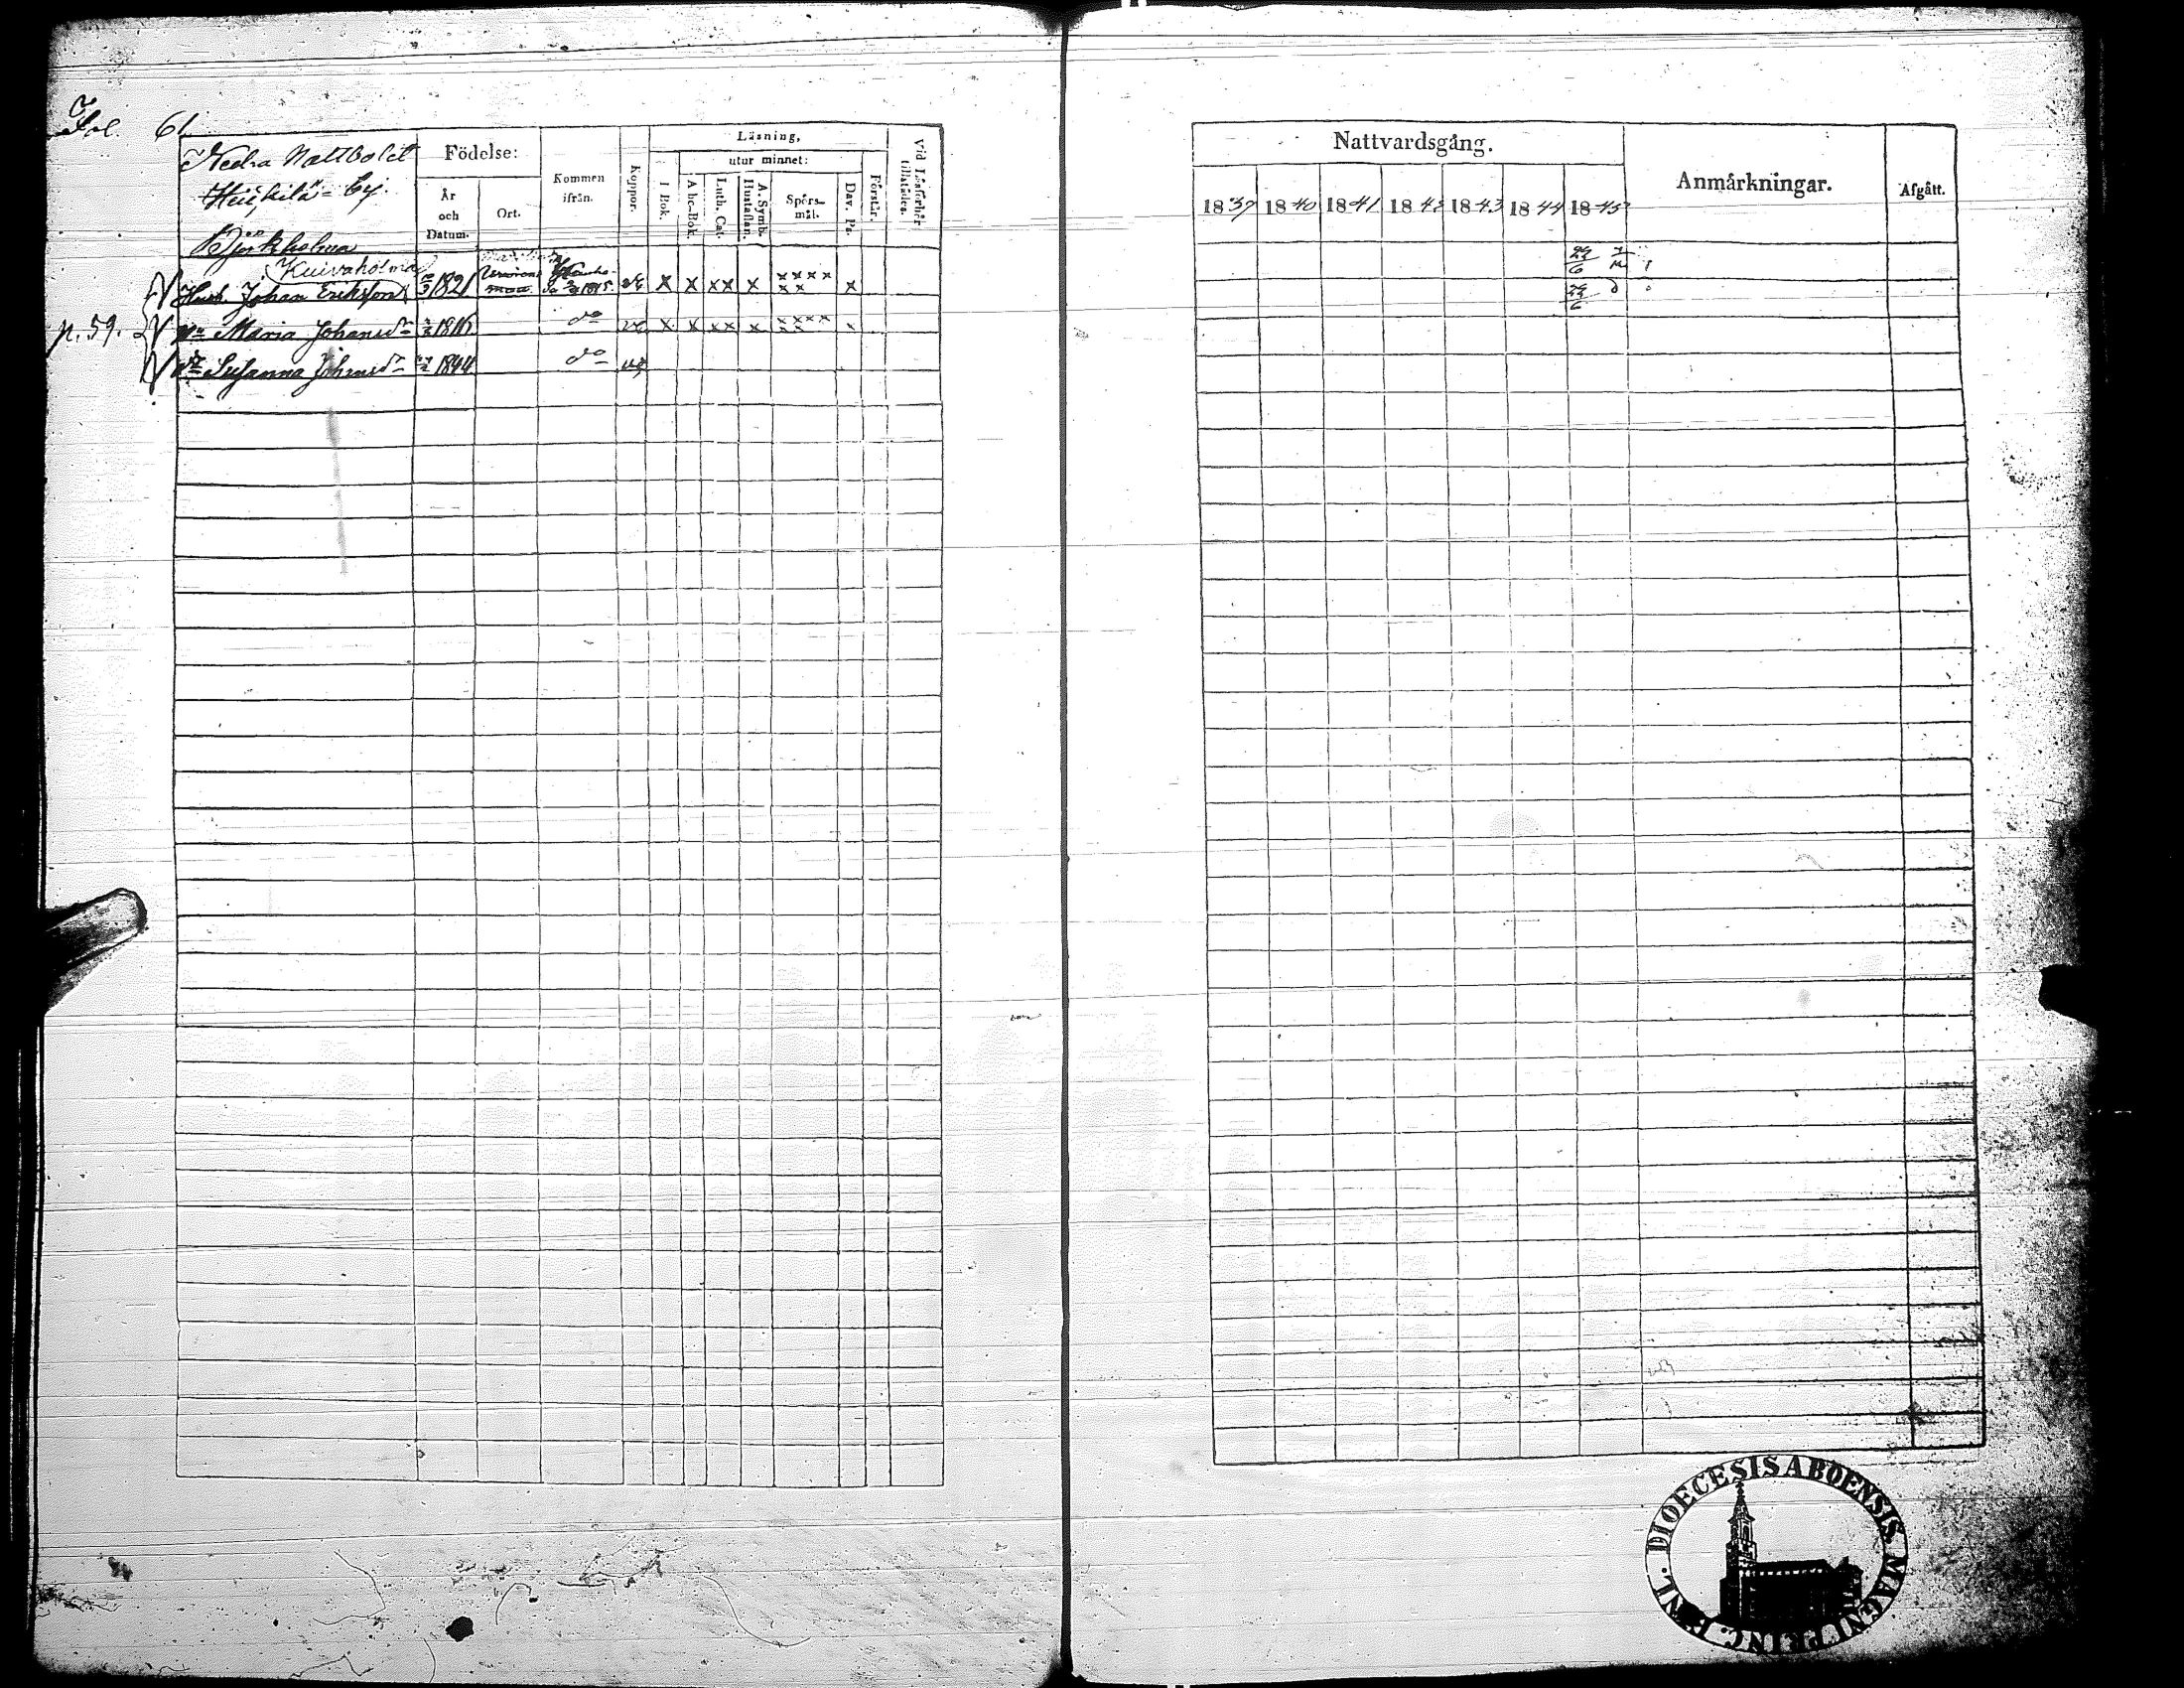 Fol. 61
Nedra Nattbolet
Heickilä - By.
Björkholma
Kuivaholma
Födelse:
År och Datum.
Ort.
Kommen ifrån.
Koppor.
Läsning,
utur minnet:
I Bok.
Abc-Bok.
Luth. Cat.
A. Symb. Hustaflan.
Spörs-mål.
Dav. Ps.
Förstår.
Vid Läseförhör tillstädes.
Husb. Johan Eriksson 1821 1845 x x xx x xxxx xx x
p. 59. Hu Maria Johansdr 1816 do x x xx x xxxx xx x
Dr Susanna Johansdr 1844 do
Nattvardsgång.
1839 1840 1841 1842 1843 1844 1845
Anmärkningar.
Afgått.
DIOECESIS ABOENSIS MAGNI PRINC. FINL.